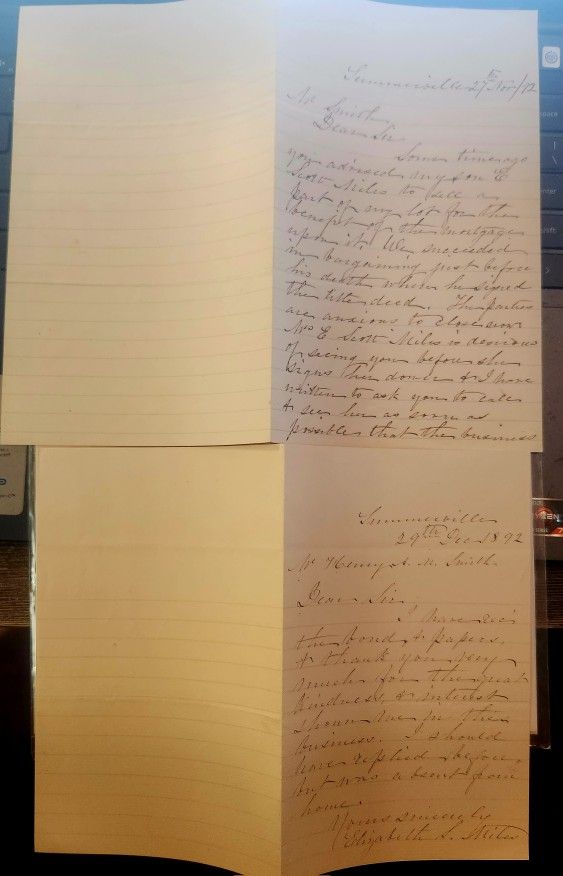 Summerville 27th Nov/92
Mr Smith
Dear Sir
Some time ago
you advised my son E
Scott Miles to sell a
part of my lot for the
benefit of the mortgage
upon it. We succeeded
in bargaining just before
his death when he signed
the title deed. The parties
are anxious to close now
Mrs E Scott Miles is desirous
of seeing you before she
signs her dower & I have
written to ask you to call
& see her as soon as
possible that the business
Summerville
29th Dec 1892
Mr Henry A. M. Smith
Dear Sir
I have rec'd
the bond & papers,
& thank you very
much for the great
kindness & interest
shown me in the
business. I should
have replied before,
but was absent from
home.
Yours sincerely
Elizabeth S. Miles